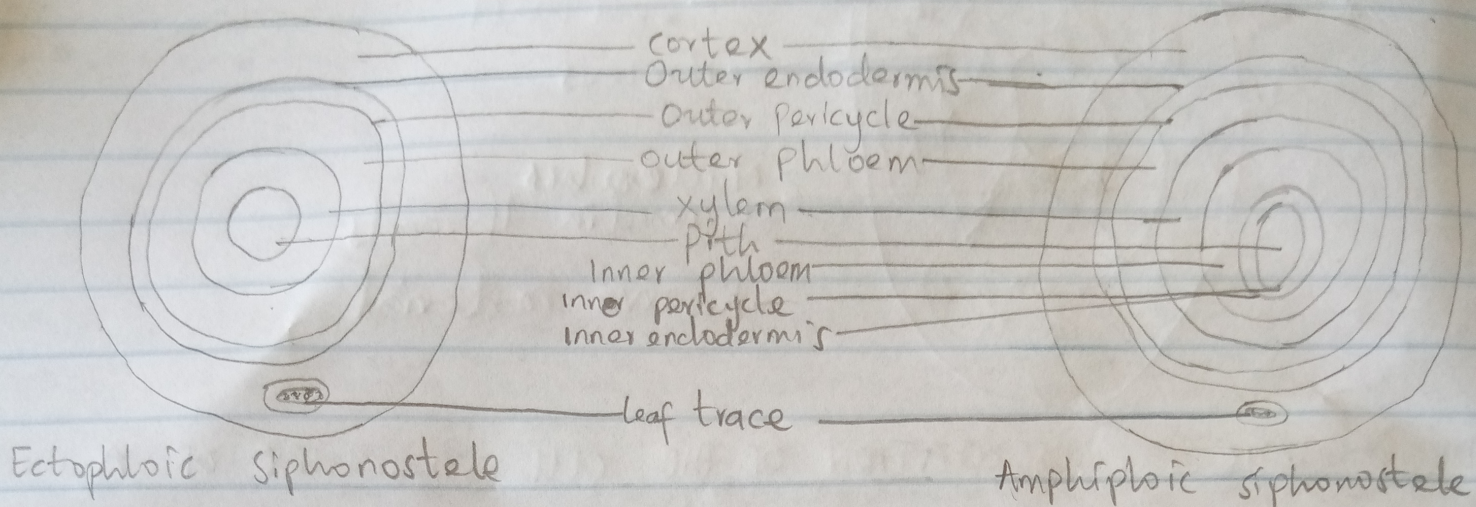 cortex
Outer endodermis
Outer pericycle
outer phloem
xylem
pith
Inner phloem
inner pericycle
inner endodermis
leaf trace
Ectophloic siphonostele
Amphiploic siphonostele